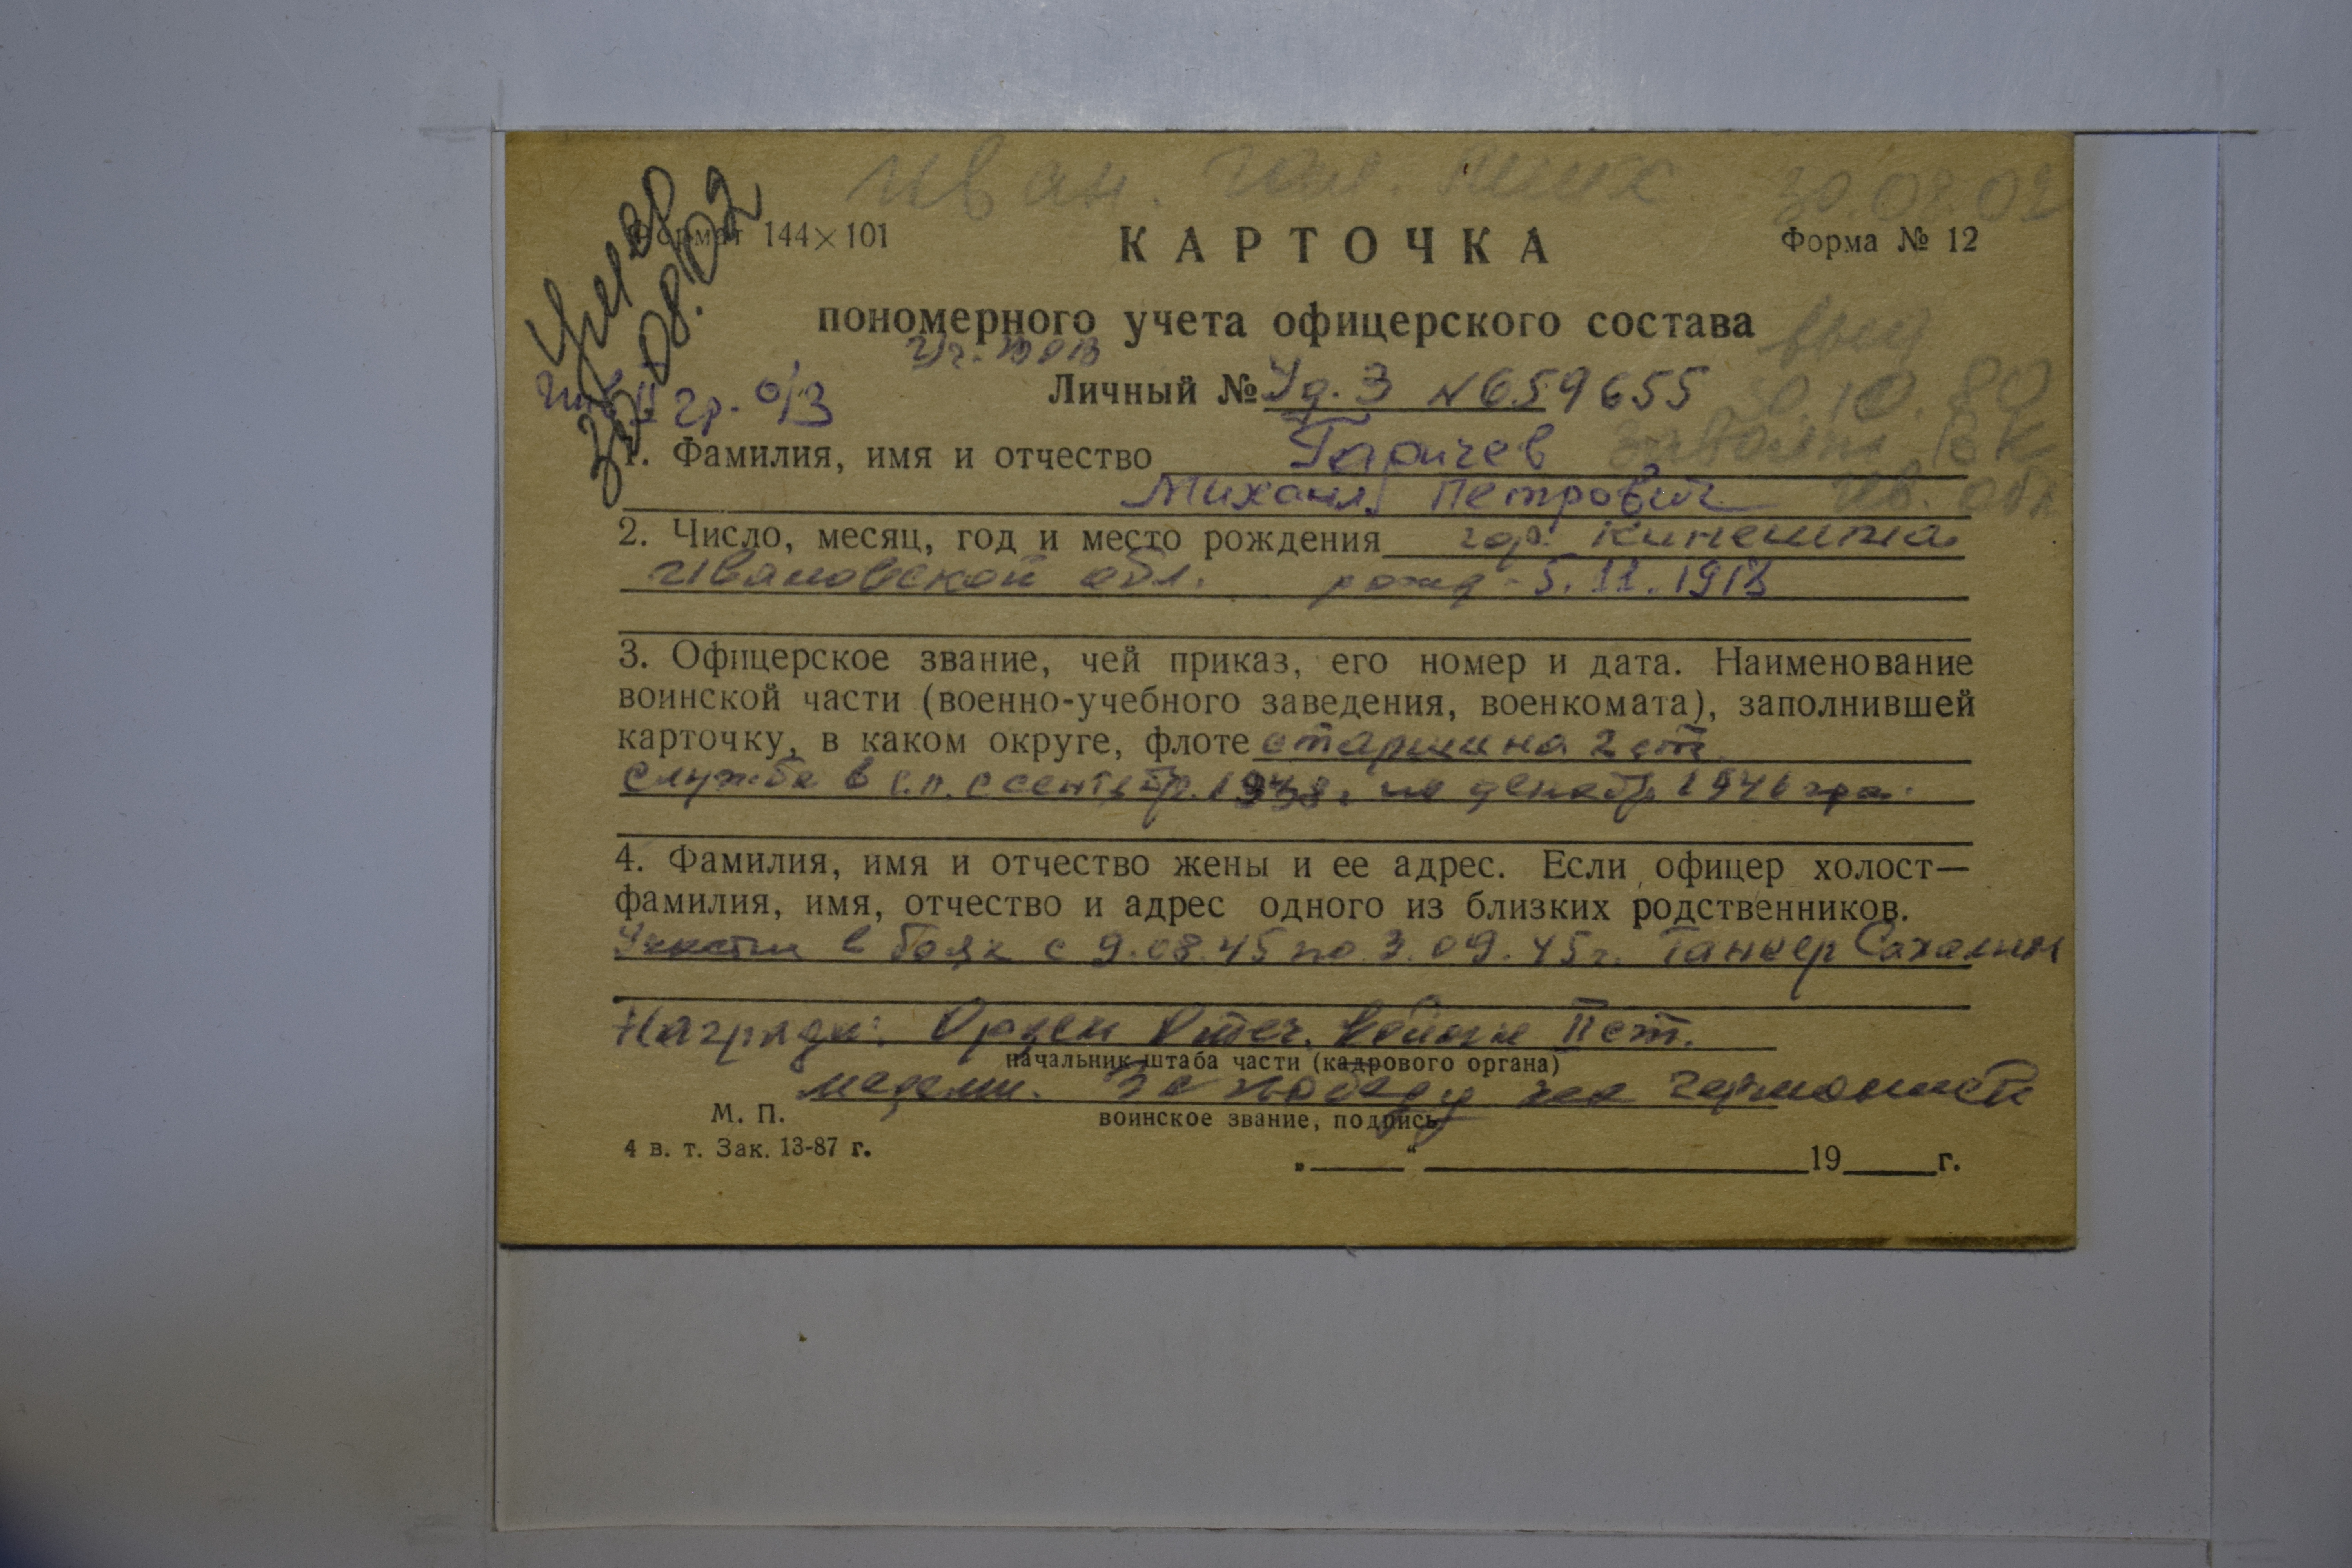 Иван. 30.08.02
Умер
30.08.02
Формат 144×101
КАРТОЧКА
Форма № 12
пономерного учета офицерского состава
Уч. ВОВ
выд
гр. о/з
Личный № Уд. 3 №659655
30.10.80
1. Фамилия, имя и отчество Гаричев
ВК
Михаил Петрович Ив. обл
2. Число, месяц, год и место рождения гор. Кинешма
Ивановской обл. рожд - 5.11.1918
3. Офицерское звание, чей приказ, его номер и дата. Наименование
воинской части (военно-учебного заведения, военкомата), заполнившей
карточку, в каком округе, флоте старшина 2 ст.
служба в с.п. с сентябр. 1938г по декабр. 1946
4. Фамилия, имя и отчество жены и ее адрес. Если офицер холост—
фамилия, имя, отчество и адрес одного из близких родственников.
Участи в боях с 9.08.45 по 3.09.45г. Танкер Сахалин
Награды: Орден Отеч. войны II ст.
начальник штаба части (кадрового органа)
медали. За победу над Германией
М. П.
воинское звание, подпись
4 в. т. Зак. 13-87 г.
„ “ 19 г.